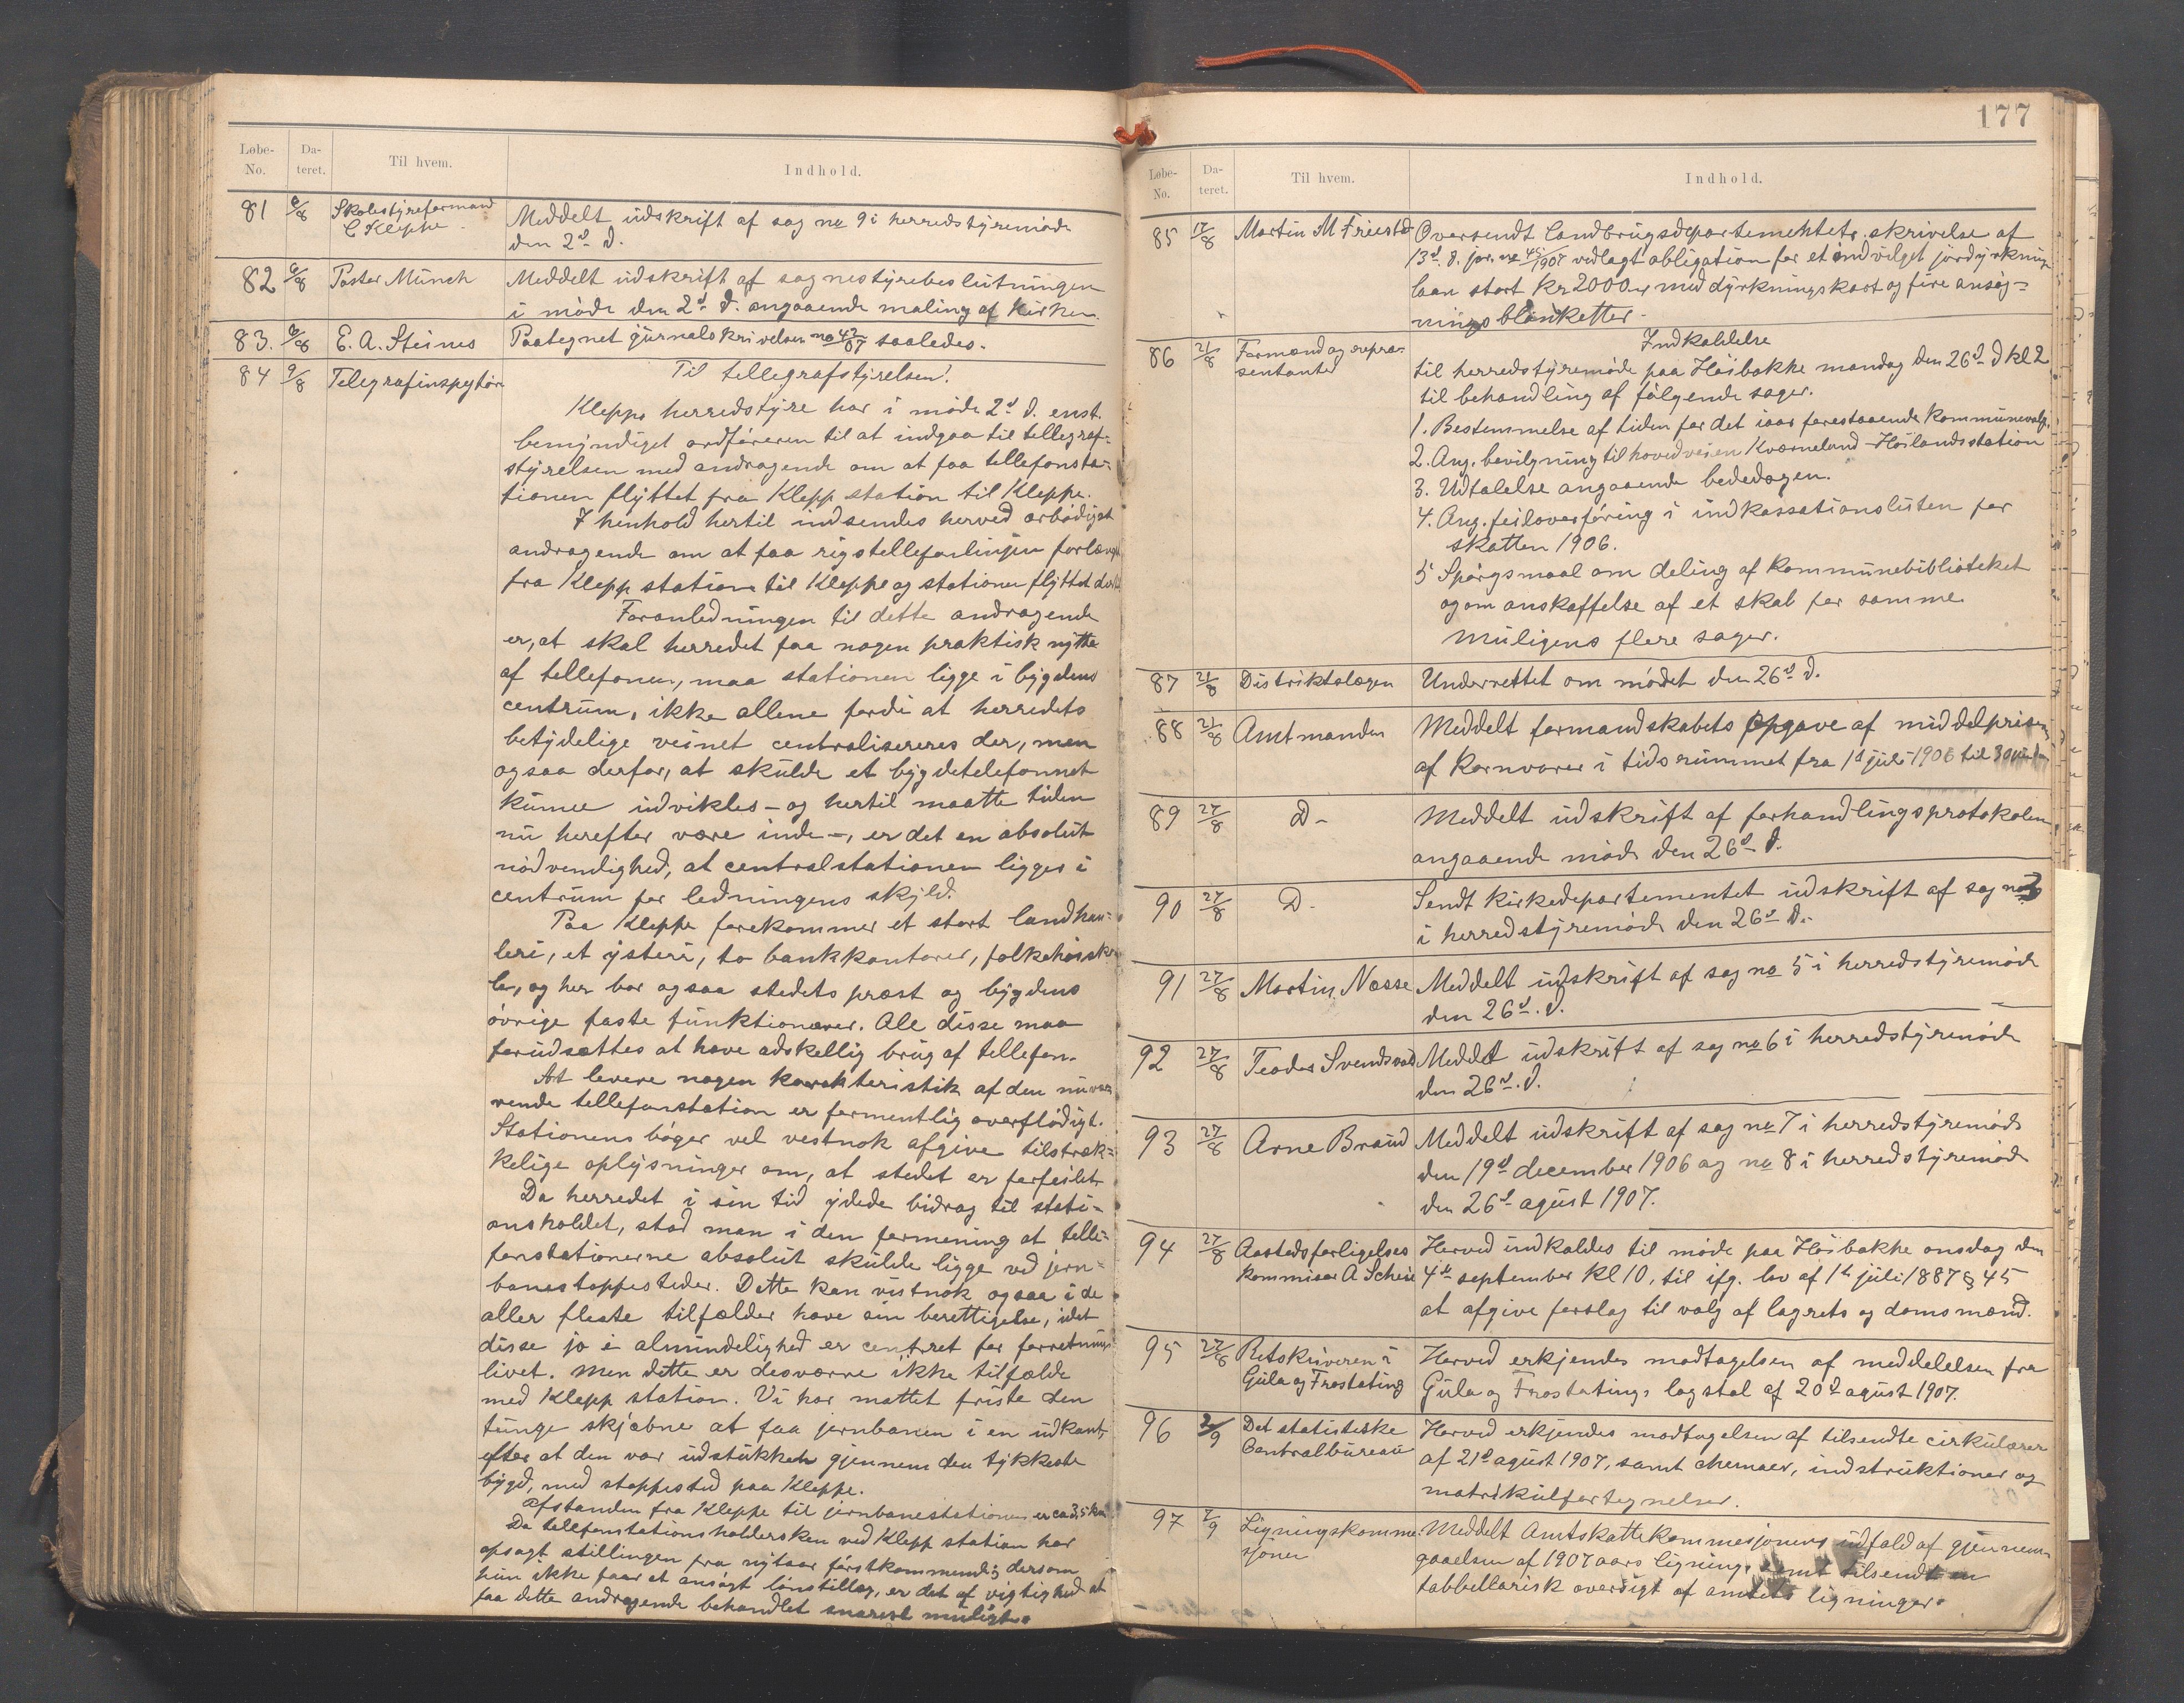 Løbe-No. Da-teret. Til hvem. Indhold.
81 6/8 Skolestyreformand E Kleppe. Meddelt udskrift af sag no 9 i herredstyremøde
den 2d d.
82 6/8 Pastor Münch Meddelt udskrift af sognestyrebeslutningen
i møde den 2d d. angaaende maling af kirken.
83. 6/8 E. A. Steines Paategnet jurnalskrivelsen no 42/07 saaledes.
84 9/8 Telegrafinspektør Til tellegrafstyrelsen!
Klepps herredstyre har i møde 2d d. enst.
bemyndiget ordføreren til at indgaa til tellegraf-
styrelsen med andragende om at faa tellefonsta-
tionen flyttet fra Klepp station til Kleppe.
I henhold hertil indsendes herved ærbødigst
andragende om at faa rigstellefonlinjen forlænget
fra Klepp station til Kleppe og stationen flyttet
Foranledningen til dette andragende
er, at skal herredet faa nogen praktisk nytte
af tellefonen, maa stationen ligge i bygdens
centrum, ikke allene fordi at herredets
betydelige veinet centralisereres der, men
ogsaa derfor, at skulde et bygdetelefonnet
kunne udvikles – og hertil maatte tiden
nu herefter være inde –, er det en absolut
nødvendighed, at centralstationen ligger i
centrum for ledningens skjld.
Paa Kleppe forekommer et stort landhan-
leri, et ysteri, to bankkontorer, folkehøisko
le, og her bor ogsaa stedets præst og bygdens
øvrige faste funktionærer. Alle disse maa
forudsættes at have adskellig brug af tellefon.
At levere nogen karakteristik af den nuvær
rende tellefonstation er formentlig overflødigt.
Stationens bøger vel vestnok afgive tilstræk-
kelige oplysninger om, at stedet er forfeilet.
Da herredet i sin tid ydede bidrag til stati-
onsholdet, stod man i den formening at telle-
fonstationerne absolut skulde ligge ved jern-
banestoppesteder. Dette kan vistnok ogsaa i de
aller fleste tilfælder have sin berettigelse, idet
disse jo i almindelighed er centret for forretnings
livet. Men dette er desværre ikke tilfælde
med Klepp station. Vi har mattet friste den
tunge skjæbne at faa jernbanen i en udkant,
efter at den var udstukket gjennem den tykkeste
bygd, med stoppested paa Kleppe.
Afstanden fra Kleppe til jernbanestationen er ca 3,5 km.
Da telefonstationsholdersken ved Klepp station har
opsagt stillingen fra nytaar førstkommende, dersom
hun ikke faar et ansøgt lønstillæg, er det af vigtighed at
faa dette andragende behandlet snarest muligt.
177
Løbe-No. Da-teret. Til hvem. Indhold.
85 17/8 Martin M Friestad Oversendt landbrugsdepartementets skrivelse af
13d. d. jor. no 45/1907 vedlagt obligation for et indvilget jordyrknings
laan stort Kr 2000,00 med dyrkningskart og fire ansøg-
nings blanketter.
86 21/8 Formænd og repræsentanter Indkaldelse
til herredstyremøde paa Høibakke mandag den 26d d kl 2
til behandling af følgende sager.
1. Bestemmelse af tiden for det iaar forestaaende kommunevalg.
2. Ang. bevilgning til hovedveien Kværneland - Høilandsstation
3. Udtalelse angaaende bededagen.
4. Ang. feiloverføring i indkassationslisten for
skatten 1906.
5 Spørgsmaal om deling af kommunebiblioteket
og om anskaffelse af et skab for samme
Muligens flere sager.
87 21/8 Distriktslægen Underrettet om mødet den 26d d.
88 21/8 Amtmanden Meddelt formandskabets opgave af middelprisen
af kornvarer i tidsrummet fra 1d juli 1906 til 30
89 27/8 D- Meddelt udskrift af forhandlingsprotokolen
angaaende møde den 26d d.
90 27/8 D- Sendt kirkedepartementet udskrift af sag no 3
i herredstyremøde den 26d d.
91 27/8 Martin Næsse Meddelt udskrift af sag no 5 i herredstyremøde
den 26d. d.
92 27/8 Teodor Svendsvold Meddelt udskrift af sag no 6 i herredstyremøde
den 26d. d.
93 27/8 Arne Braud Meddelt udskrift af sag no 7 i herredstyremøde
den 19d december 1906 og no 8 i herredstyremøde
den 26d agust 1907.
94 27/8 Aastedsforligelses kommisær A Scheie Herved indkaldes til møde paa Høibakke onsdag den
4de september kl 10, til ifg. lov af 1ste juli 1887 § 45
at afgive forslag til valg af lagrets og domsmænd.
95 27/8 Retskriveren i Gula og Frostating Herved erkjendes modtagelsen af meddelelsen fra
Gula og Frostatings lagstol af 20d agust 1907.
96 2/9 Det statistiske Centralbureau Herved erkjendes modtagelsen af tilsendte cirkulærer
af 21d agust 1907, samt chemaer, indstruktioner og
matrikulfortegnelser.
97 7/9 Ligningskommesjonen Meddelt Amtskattekommesjonens udfald af gjennem
gaaelsen af 1907 aars ligning, samt tilsendt en
tabbellarisk oversigt af amtets ligninger.